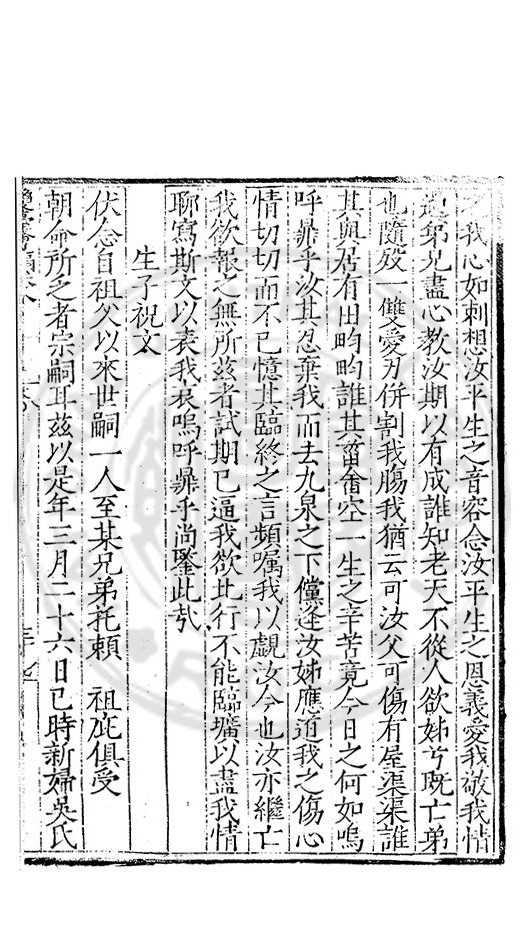 我心如刺想汝平生之音容念汝平生之恩義愛我敬我情
過弟兄盡心教汝期以有成誰知老天不從人欲姊兮既亡弟
也隨歿一雙愛刃併割我腸我猶云可汝父可傷有屋渠渠誰
其與居有田畇畇誰其菑畬空一生之辛苦竟今日之何如嗚
呼鼎乎汝其忍棄我而去九泉之下儻逢汝姊應道我之傷心
情切切而不已憶其臨終之言頻囑我以覷汝今也汝亦繼亡
我欲報之無所茲者試期已逼我欲北行不能臨壙以盡我情
聊寫斯文以表我衷嗚呼鼎乎尚鑒此哉
生子祝文
伏念自祖父以來世嗣一人至某兄弟托賴 祖庇俱受
朝命所乏者宗嗣耳茲以是年三月二十六日巳時新婦吳氏